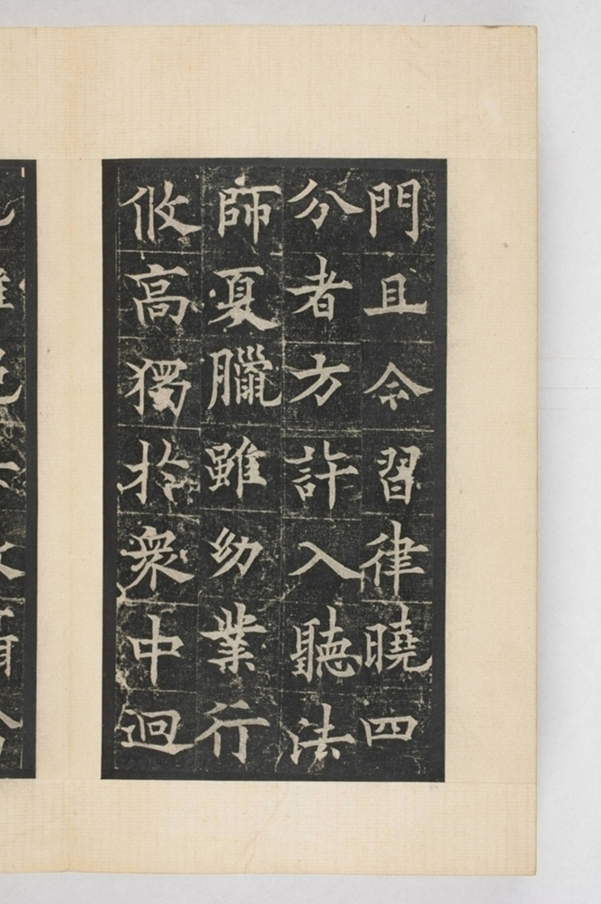 門且令習律曉四
分者方許入聽法
師夏臘雖幼業行
攸高獨於衆中迥